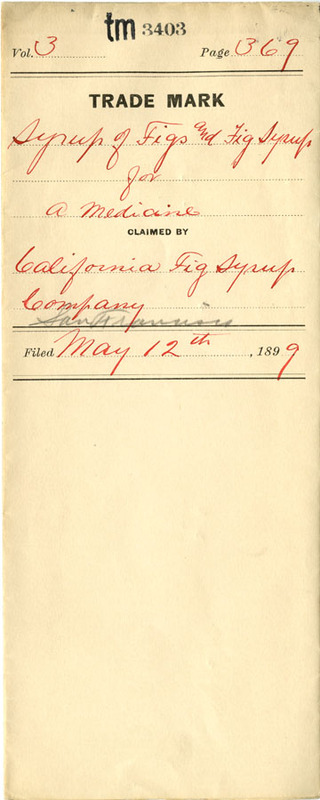 tm 3403
Vol. 3 Page 369
TRADE MARK
Syrup of Figs and Fig Syrup
for
a medicine
CLAIMED BY
California Fig Syrup
Company
San Francisco
Filed May 12th, 1899